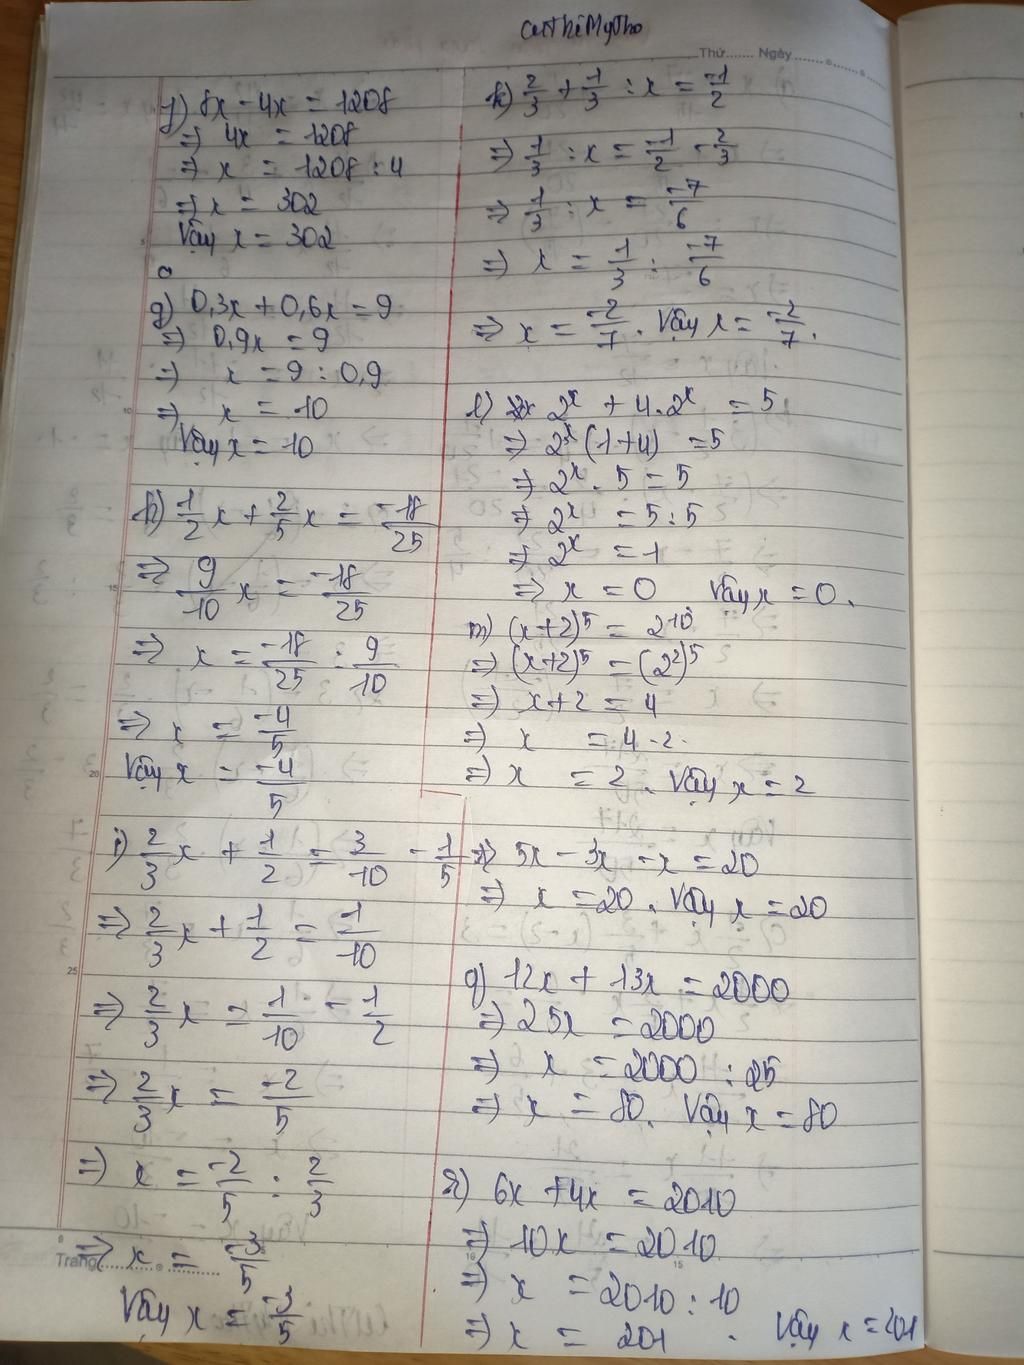 Thứ....... Ngày.......
y) 8x - 4x = 1208
=> 4x = 1208
=> x = 1208 : 4
=> x = 302
Vậy x = 302
g) 0,3x + 0,6x = 9
=> 0,9x = 9
=> x = 9 : 0,9
=> x = 10
Vậy x = 10
h) 1/2 x + 2/5 x = -18/25
=> 9/10 x = -18/25
=> x = -18/25 : 9/10
=> x = -4/5
Vậy x = -4/5
i) 2/3 x + 1/2 = 3/10 - 1/5
=> 2/3 x + 1/2 = 1/10
=> 2/3 x = 1/10 - 1/2
=> 2/3 x = -2/5
=> x = -2/5 : 2/3
=> x = -3/5
Vậy x = -3/5
Trang
k) 2/3 + 1/3 : x = -1/2
=> 1/3 : x = -1/2 - 2/3
=> 1/3 : x = -7/6
=> x = 1/3 : -7/6
=> x = -2/7 . Vậy x = -2/7 .
l) 2^x + 4.2^x = 5
=> 2^x (1+4) = 5
=> 2^x . 5 = 5
=> 2^x = 5 : 5
=> 2^x = 1
=> x = 0 Vậy x = 0 .
m) (x+2)^5 = 2^10
=> (x+2)^5 = (2^2)^5
=> x+2 = 4
=> x = 4 - 2
=> x = 2 . Vậy x = 2
5x - 3x - x = 20
=> x = 20 . Vậy x = 20
q) 12x + 13x = 2000
=> 25x = 2000
=> x = 2000 : 25
=> x = 80. Vậy x = 80
6x + 4x = 2010
=> 10x = 2010
=> x = 2010 : 10
=> x = 201 . Vậy x = 201